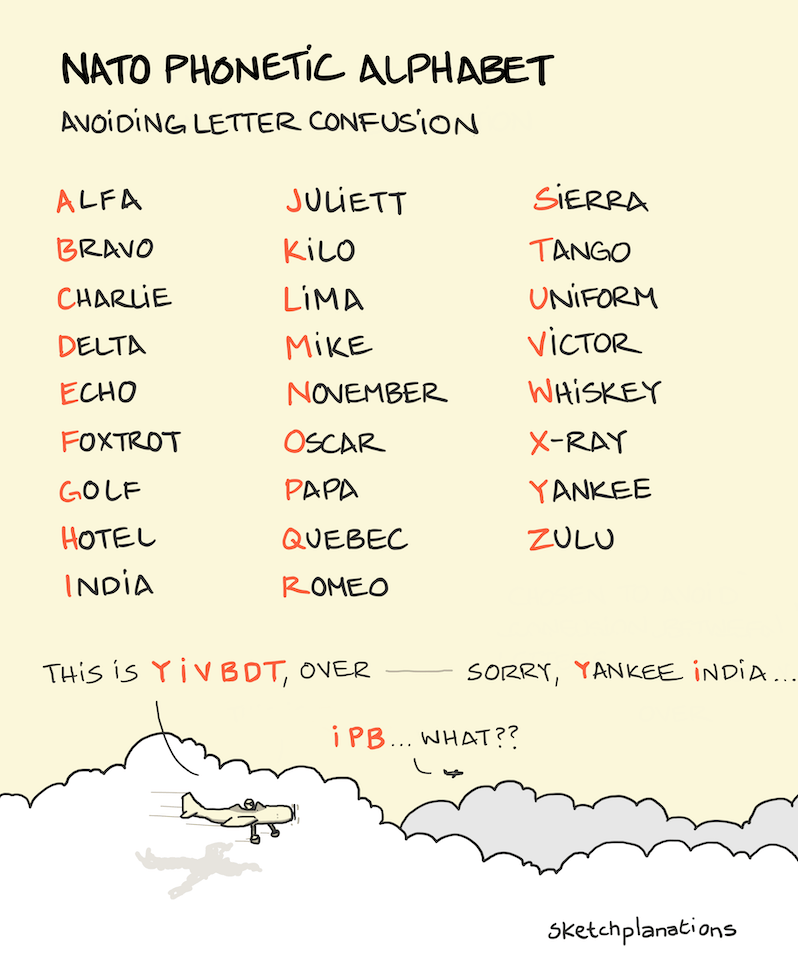 NATO PHONETIC ALPHABET
AVOIDING LETTER CONFUSION
ALFA
BRAVO
CHARLIE
DELTA
ECHO
FOXTROT
GOLF
HOTEL
INDIA
JULIETT
KILO
LIMA
MIKE
NOVEMBER
OSCAR
PAPA
QUEBEC
ROMEO
SIERRA
TANGO
UNIFORM
VICTOR
WHISKEY
X-RAY
YANKEE
ZULU
THIS IS YIVBDT, OVER — SORRY, YANKEE INDIA...
IPB... WHAT??
sketchplanations